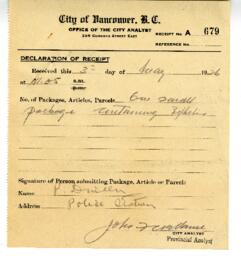 City of Vancouver, B.C.
OFFICE OF THE CITY ANALYST
236 CORDOVA STREET EAST
RECEIPT No. A 679
REFERENCE No.
DECLARATION OF RECEIPT
Received this 3rd day of May 1926
at 11.05 a.m.
No. of Packages, Articles, Parcels: One small
package containing
Signature of Person submitting Package, Article or Parcel:
Name P.
Address Police Station
John F.
CITY ANALYST
Provincial Analyst